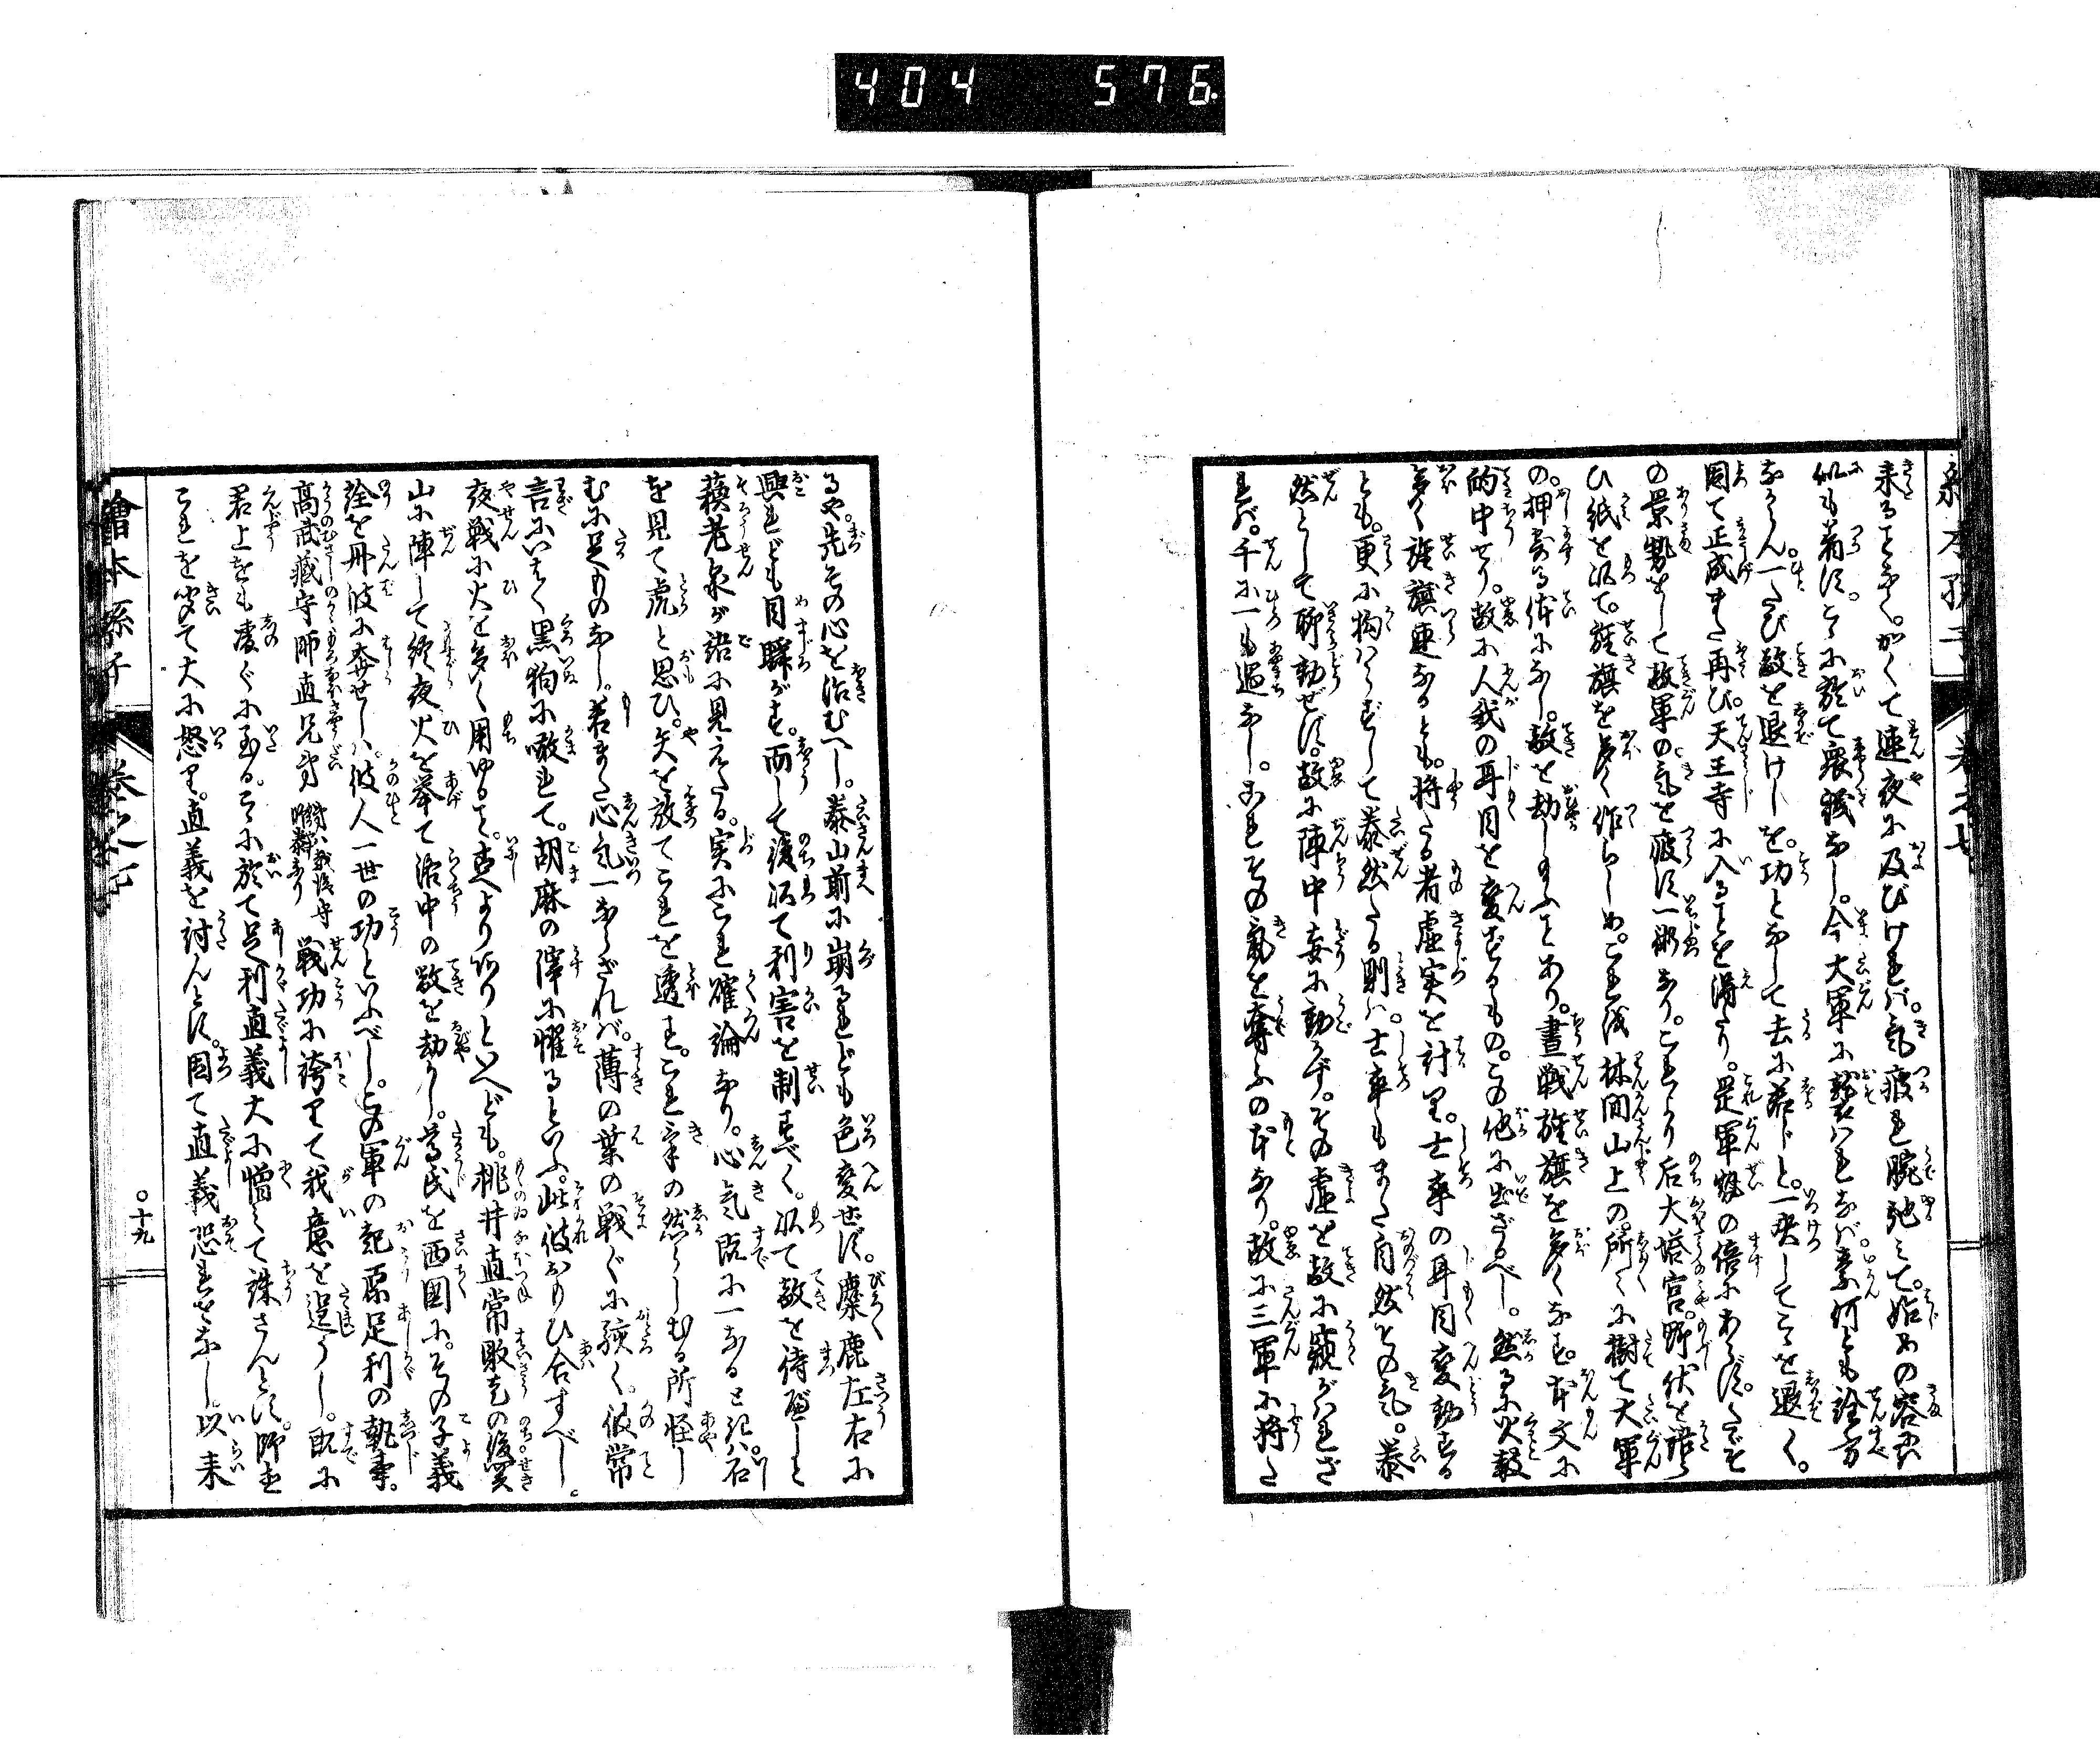 404 576
繪本孫子 巻之七
来ることなく。かくて連夜に及びければ。気疲れ腕弛みて。始めの容子に
似も着ず。こゝに於て衆議なし。今大軍に襲はれなば。奈何とも詮方
なからん。一たび敵を退けしを。功となして去に若じと。一決してこゝを退く。
因て正成また再び。天王寺に入ることを得たり。是軍勢の倍にあらず。たゞそ
の景勢をして敵軍の気を疲す一術なり。これより后大塔宮。野伏を語ら
ひ紙を以て。旌旗を多く作らしめ。これを林間山上の。所々に樹て大軍
の。押寄る体になし。敵を劫しゝことあり。昼戦旌旗を多くなす。本文に
的中せり。故に人我の耳目を変ずるもの。この他に出ざるべし。然るに火鼓
多く旌旗連なるとも。将たる者虚実を計り。士卒の耳目変動する
とも。更に拘はらずして泰然たる則は。士卒もまた自然その気。泰
然として聊動ぜず。故に陣中妄に動かず。その虚を敵に窺がはれざ
れば。千に一も過なし。これその気を奪ふの本なり。故に三軍に将た
るや。先その心を治むべし。泰山前に崩るれども色変ぜず。麋鹿左右に
興れども目瞬がず。而して後以て利害を制すべく。以て敵を待べしと
蘇老泉が語に見えたる。実にこれ確論なり。心気既に一なるときは石
を見て虎と思ひ。矢を放てこれを透す。これ気の然らしむる所怪し
むに足ものなし。若また心気一ならざれば。薄の葉の戦ぐに駭く。彼常
言にいはく黒狗に噉れて。胡麻の滓に懼るといふ。此彼おもひ合すべし。
夜戦に火を多く用ゆること。古へより有りといへども。桃井直常敗走の後。関
山に陣して終夜火を挙て洛中の敵を劫かし。尊氏を西国に。その子義
詮を丹波に奔せしは。彼人一世の功といふべし。この軍の起原足利の執事。
高武蔵守師直兄弟 戦功に誇りて我意を逞うし。既に
君上をも凌ぐに至る。こゝに於て足利直義大に憎みて誅さんとす。師直
これを聞て大に怒り。直義を討んとす。因て直義恐れをなし。以来
繪本孫子 巻之七
〇十九